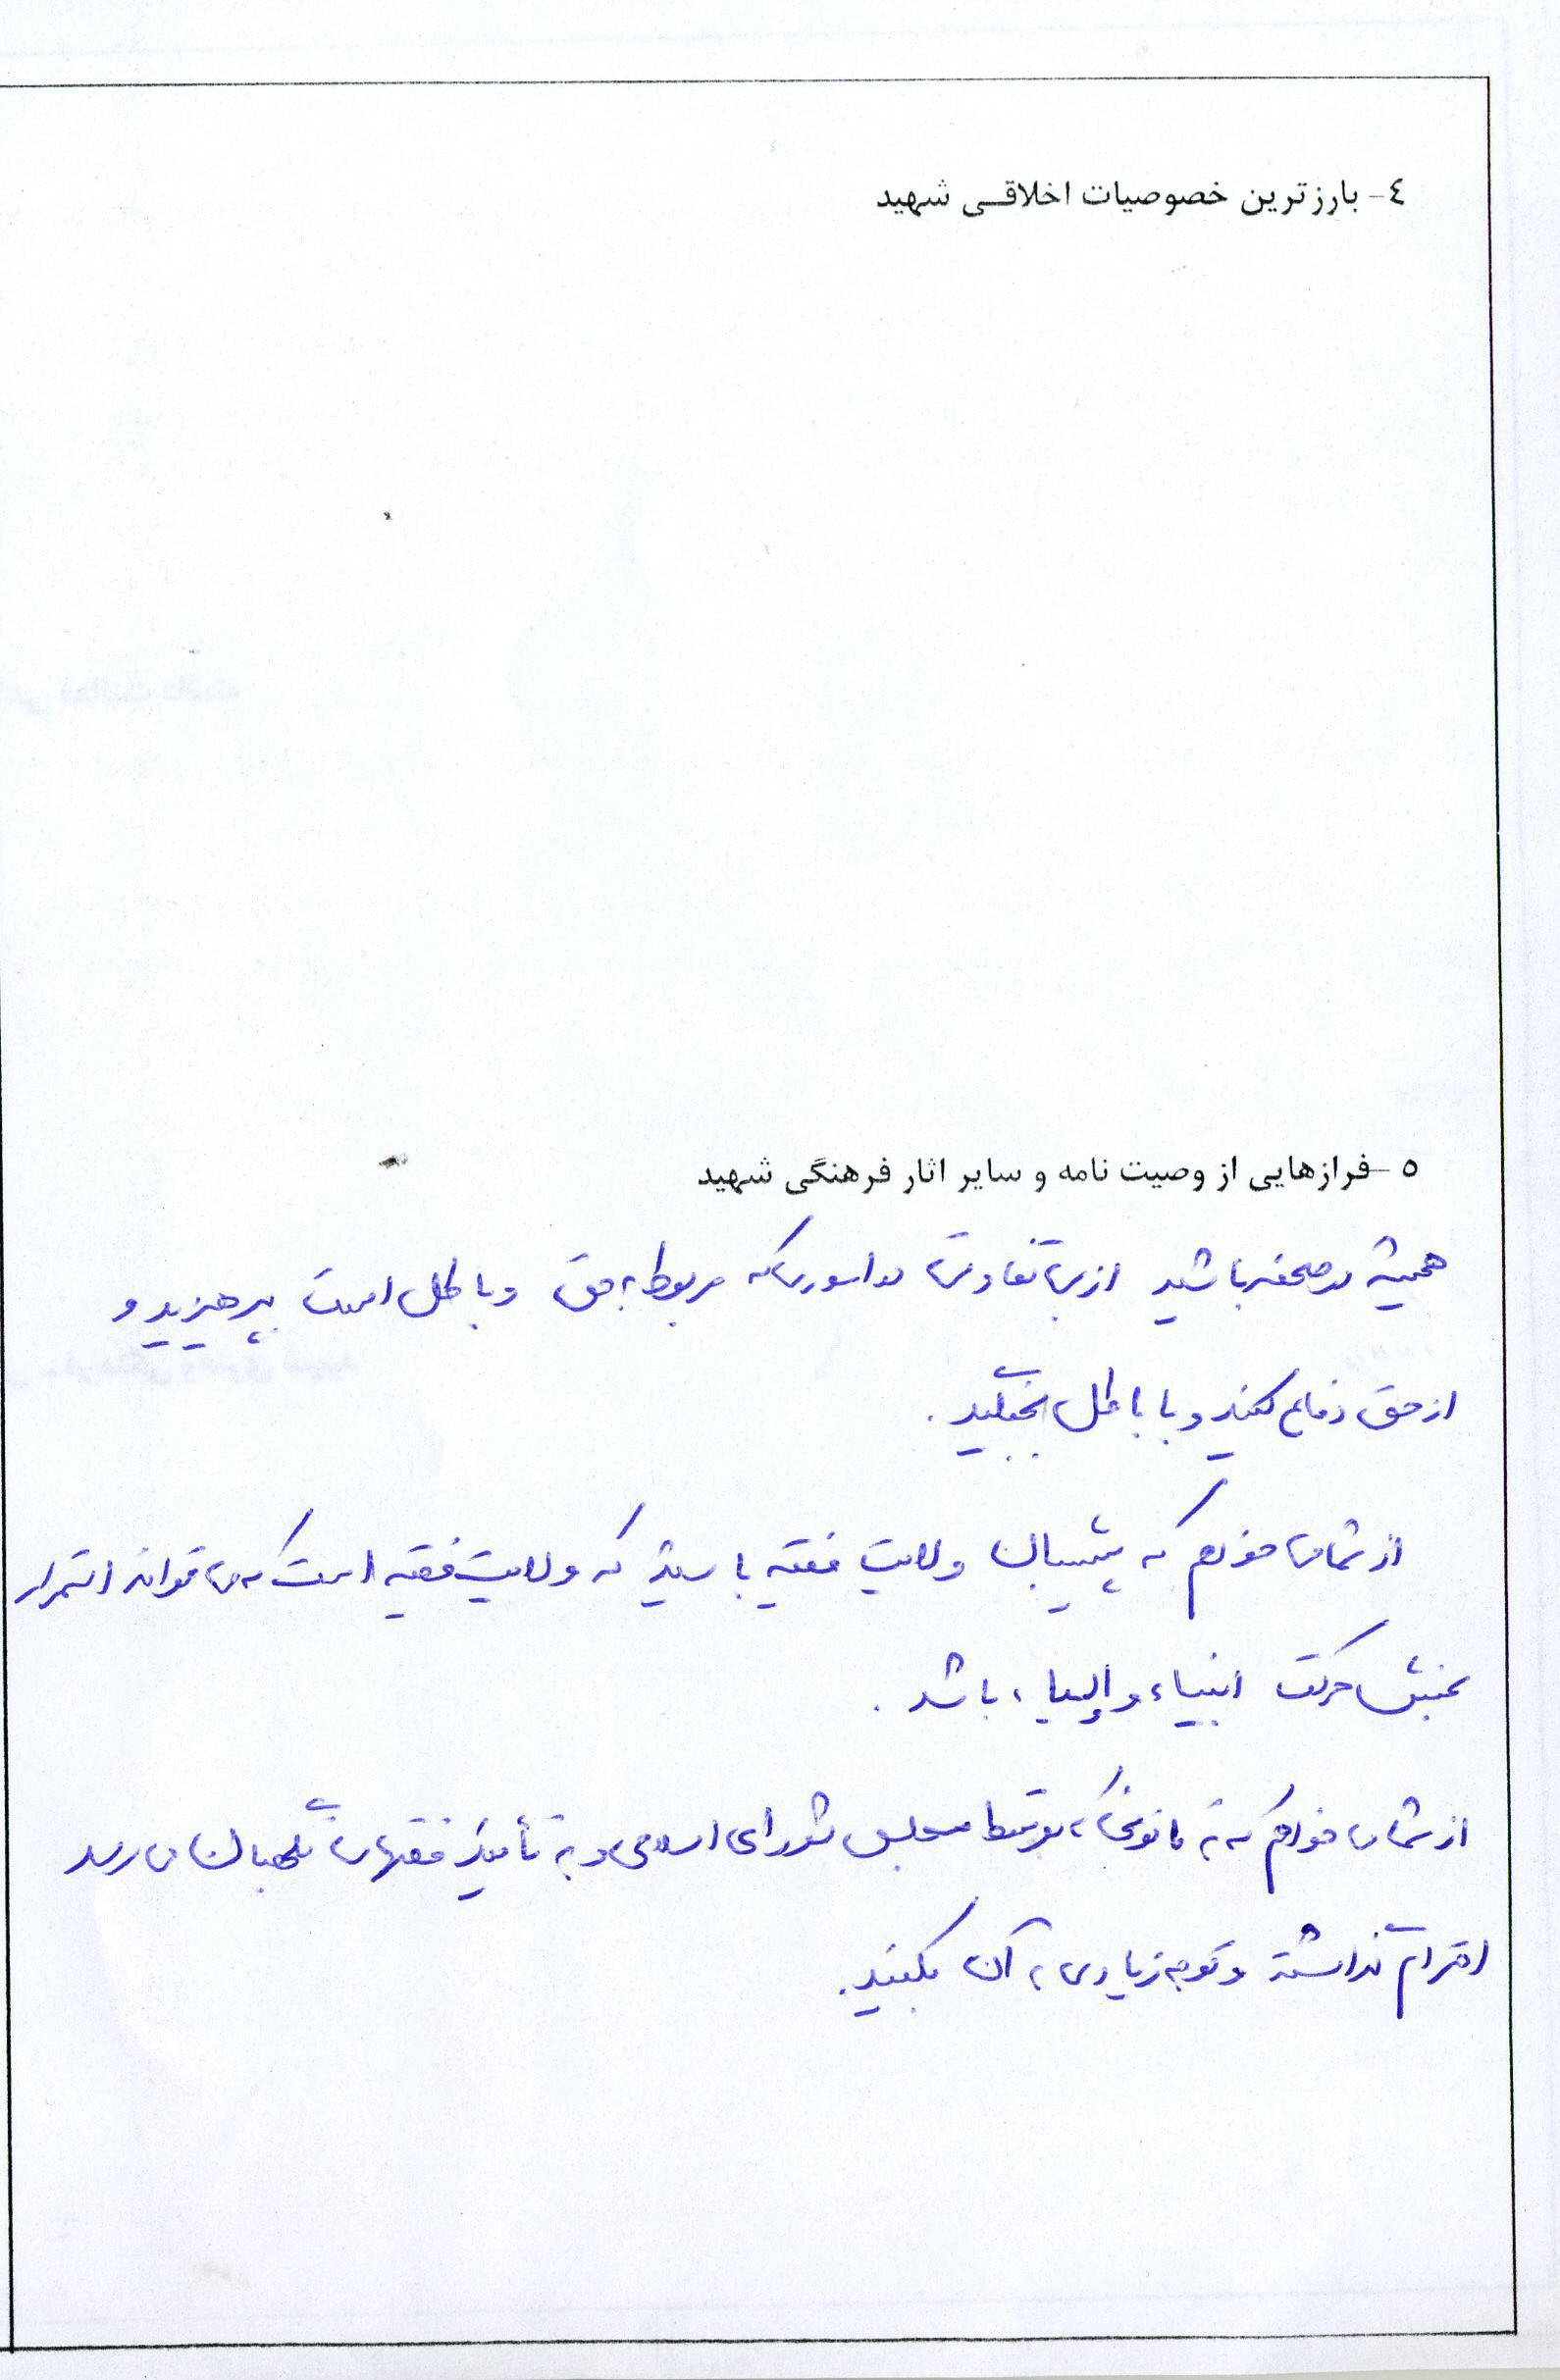 ٤- بارزترین خصوصیات اخلاقی شهید
٥- فرازهایی از وصیت نامه و سایر اثار فرهنگی شهید
همیشه در صحنه باشید از بی تفاوتی در اموری که مربوط به حق و باطل است بپرهیزید و
از حق دفاع کنید و با باطل بجنگید .
از شما می خواهم که پشتیبان ولایت فقیه باشید که ولایت فقیه است که می تواند استمرار
بخش حرکت انبیاء و اولیاء باشد .
از شما می خواهم که به قانونی که توسط مجلس شورای اسلامی و به تأیید فقهای نگهبان می رسد
احترام گذاشته و توجه زیادی به آن بکنید .